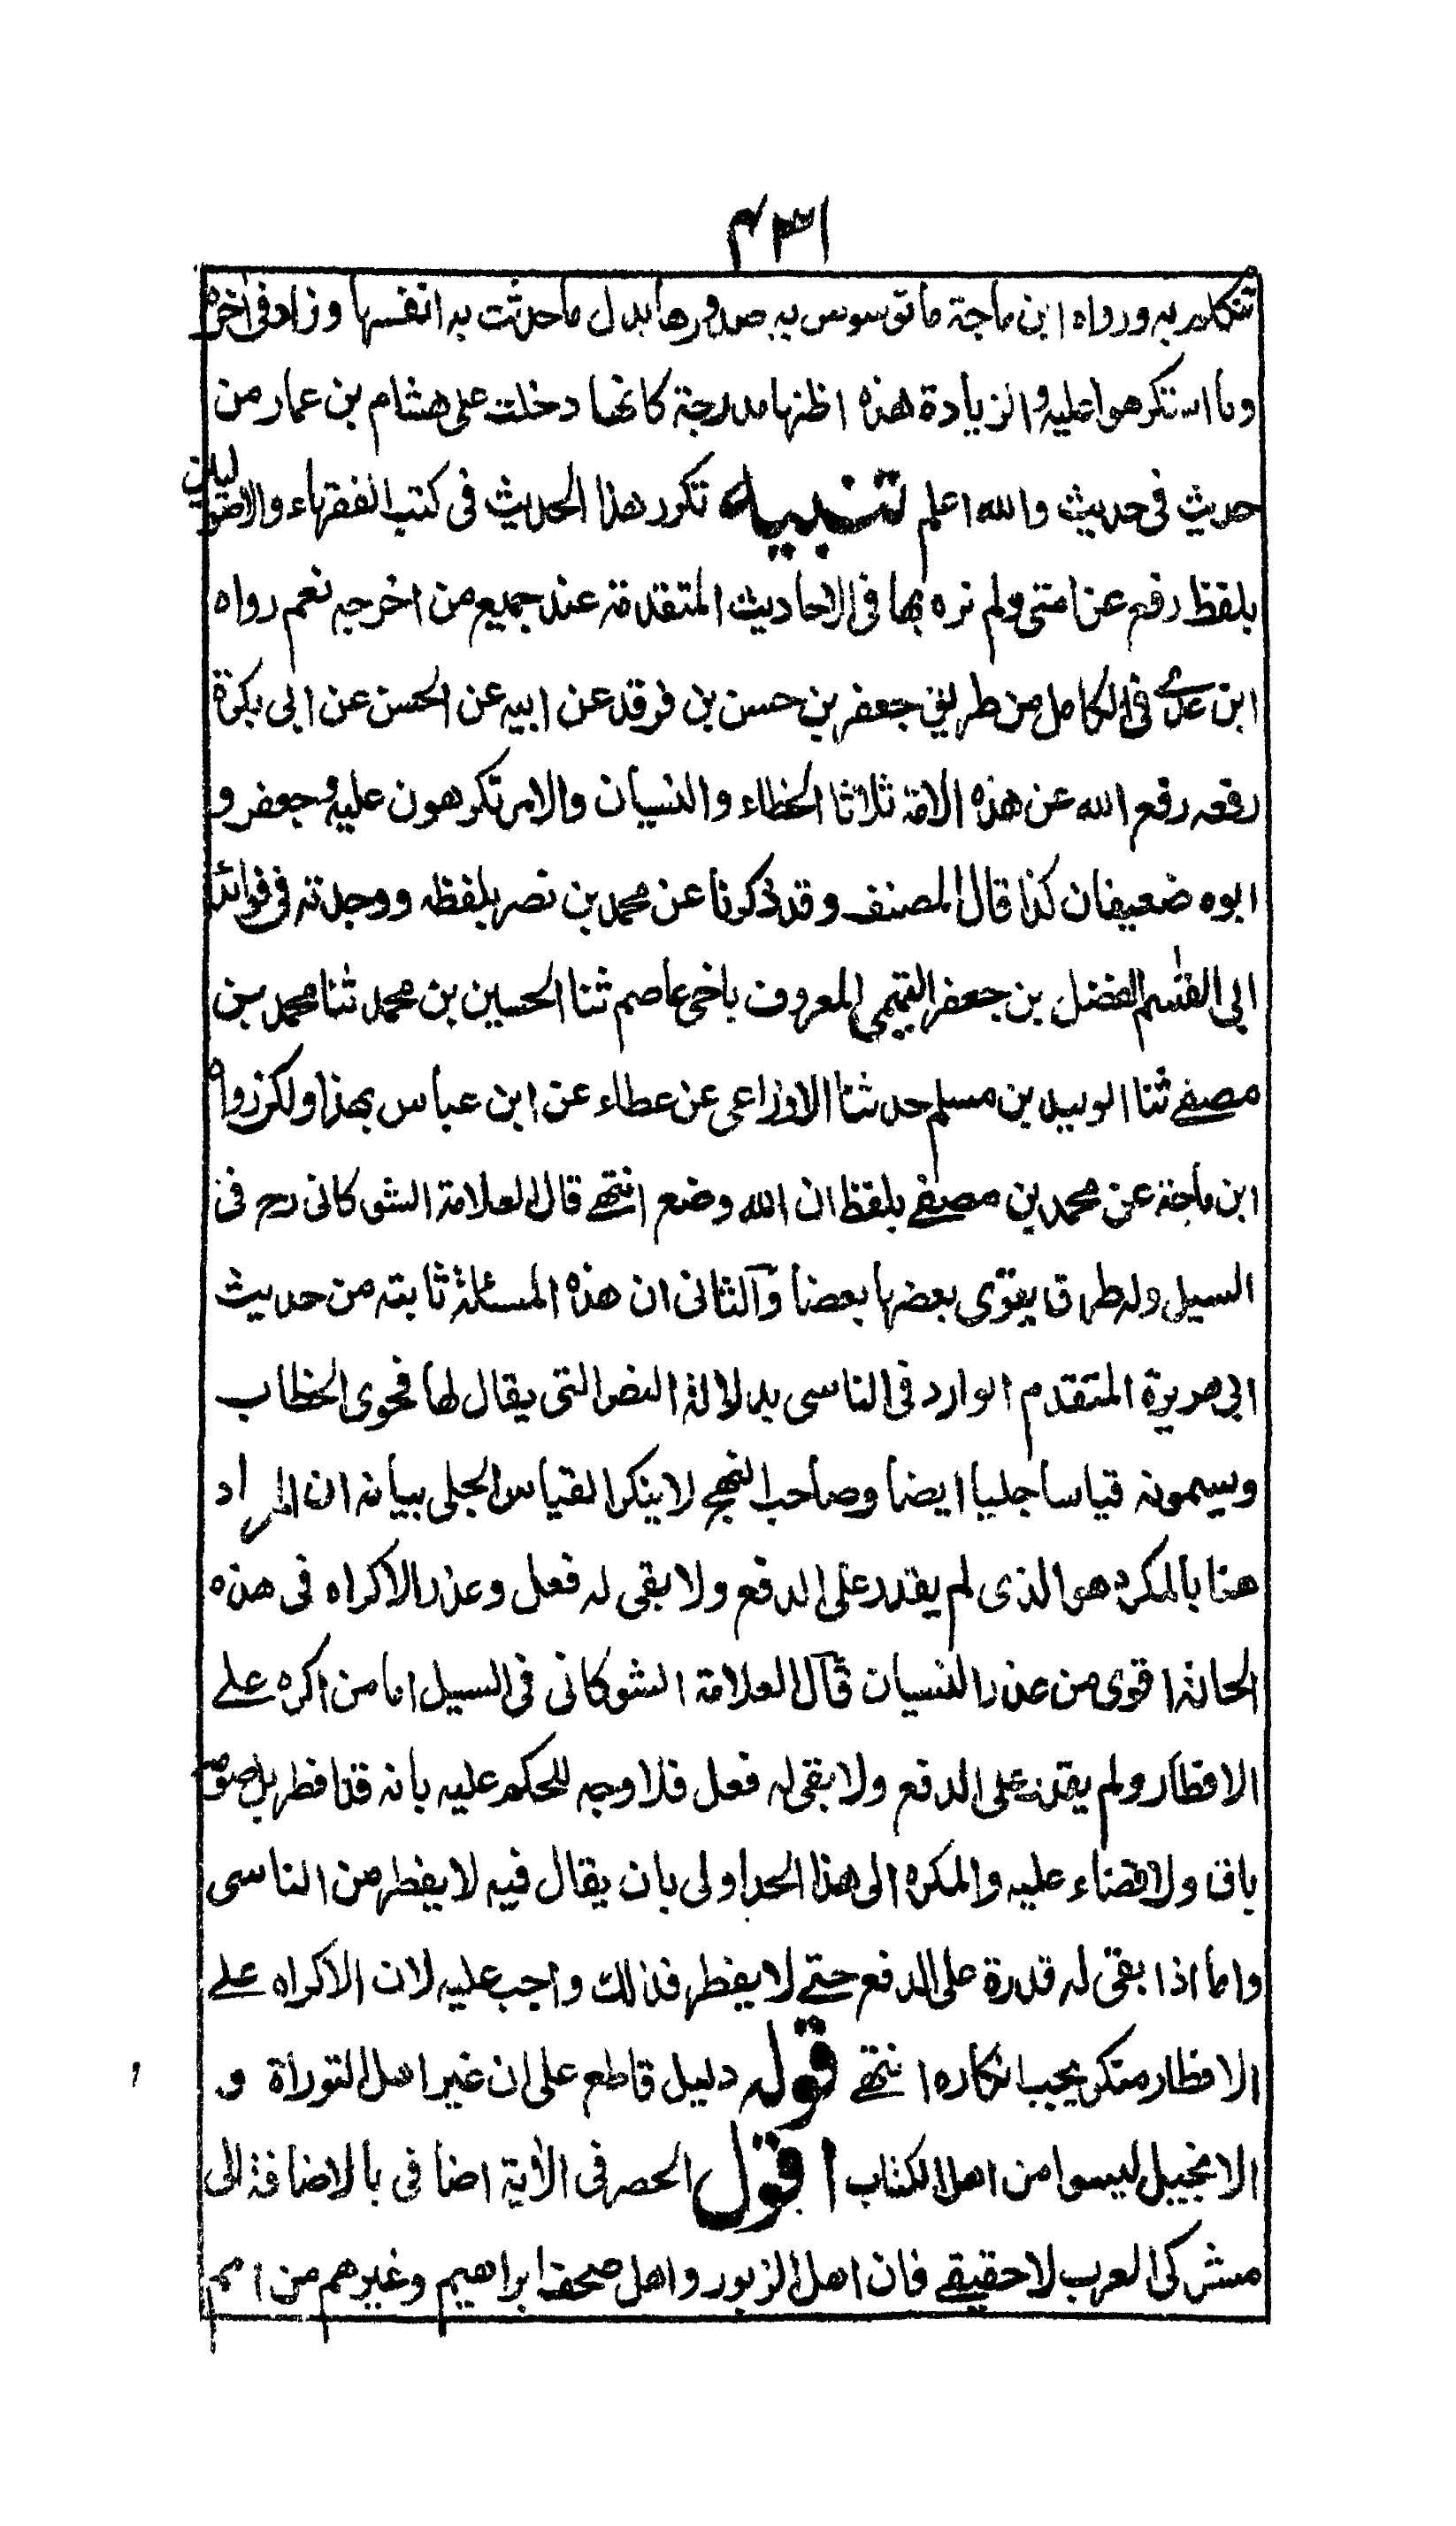 ٤٣١
تتكلم به ورواه ابن ماجة ما توسوس به صدورها بدل ما حدثت به انفسها وزاد فى اخره
وما استكرهوا عليه والزيادة هذه اظنها مدرجة كانها دخلت على هشام بن عمار من
حديث فى حديث والله اعلم تنبيه تكرر هذا الحديث فى كتب الفقهاء والاصوليين
بلفظ رفع عن امتى ولم نره بها فى الاحاديث المتقدمة عند جميع من اخرجه نعم رواه
ابن عدے فى الكامل من طريق جعفر بن حسن بن فرقد عن ابيه عن الحسن عن ابى بكرة
رفعه رفع الله عن هذه الامة ثلاثا الخطاء والنسيان والامر تكرهون عليه وجعفر و
ابوه ضعيفان كذا قال المصنف وقد ذكرنا عن محمد بن نصر بلفظه ووجدته فى فوائد
ابى القسم الفضل بن جعفر التميمى المعروف باخى عاصم ثنا الحسين بن محمد ثنا محمد بن
مصفے ثنا الوليد بن مسلم حدثنا الاوزاعى عن عطاء عن ابن عباس بهذا ولكن رواه
ابن ماجة عن محمد بن مصفے بلفظ ان الله وضع انتهے قال العلامة الشوكانى رح فى
السيل وله طرق يقوى بعضها بعضا والثانى ان هذه المسئلة ثابتة من حديث
ابى هريرة المتقدم الوارد فى الناسى بدلالة النص التى يقال لها فحوى الخطاب
ويسمونه قياسا جليا ايضا وصاحب النهج لا ينكر القياس الجلى بيانه ان المراد
هنا بالمكره هو الذى لم يقدر على الدفع ولا بقى له فعل وعذر الاكراه فى هذه
الحالة اقوى من عذر النسيان قال العلامة الشوكانى فى السيل اما من اكره علے
الافطار ولم يقدر على الدفع ولا بقى له فعل فلا وجه للحكم عليه بانه قد افطر بل صومه
باق ولا قضاء عليه والمكره الى هذا الحد اولى بان يقال فيه لا يفطر من الناسى
واما اذا بقى له قدرة على الدفع حتے لا يفطر فذلك واجب عليه لان الاكراه علے
الافطار منكر يجب انكاره انتهے قوله دليل قاطع على ان غير اهل التوراة و
الانجيل ليسوا من اهل الكتاب اقول الحصر فى الاية اضافى بالاضافة الى
مشركى العرب لا حقيقے فان اهل الزبور واهل صحف ابراهيم وغيرهم من امم